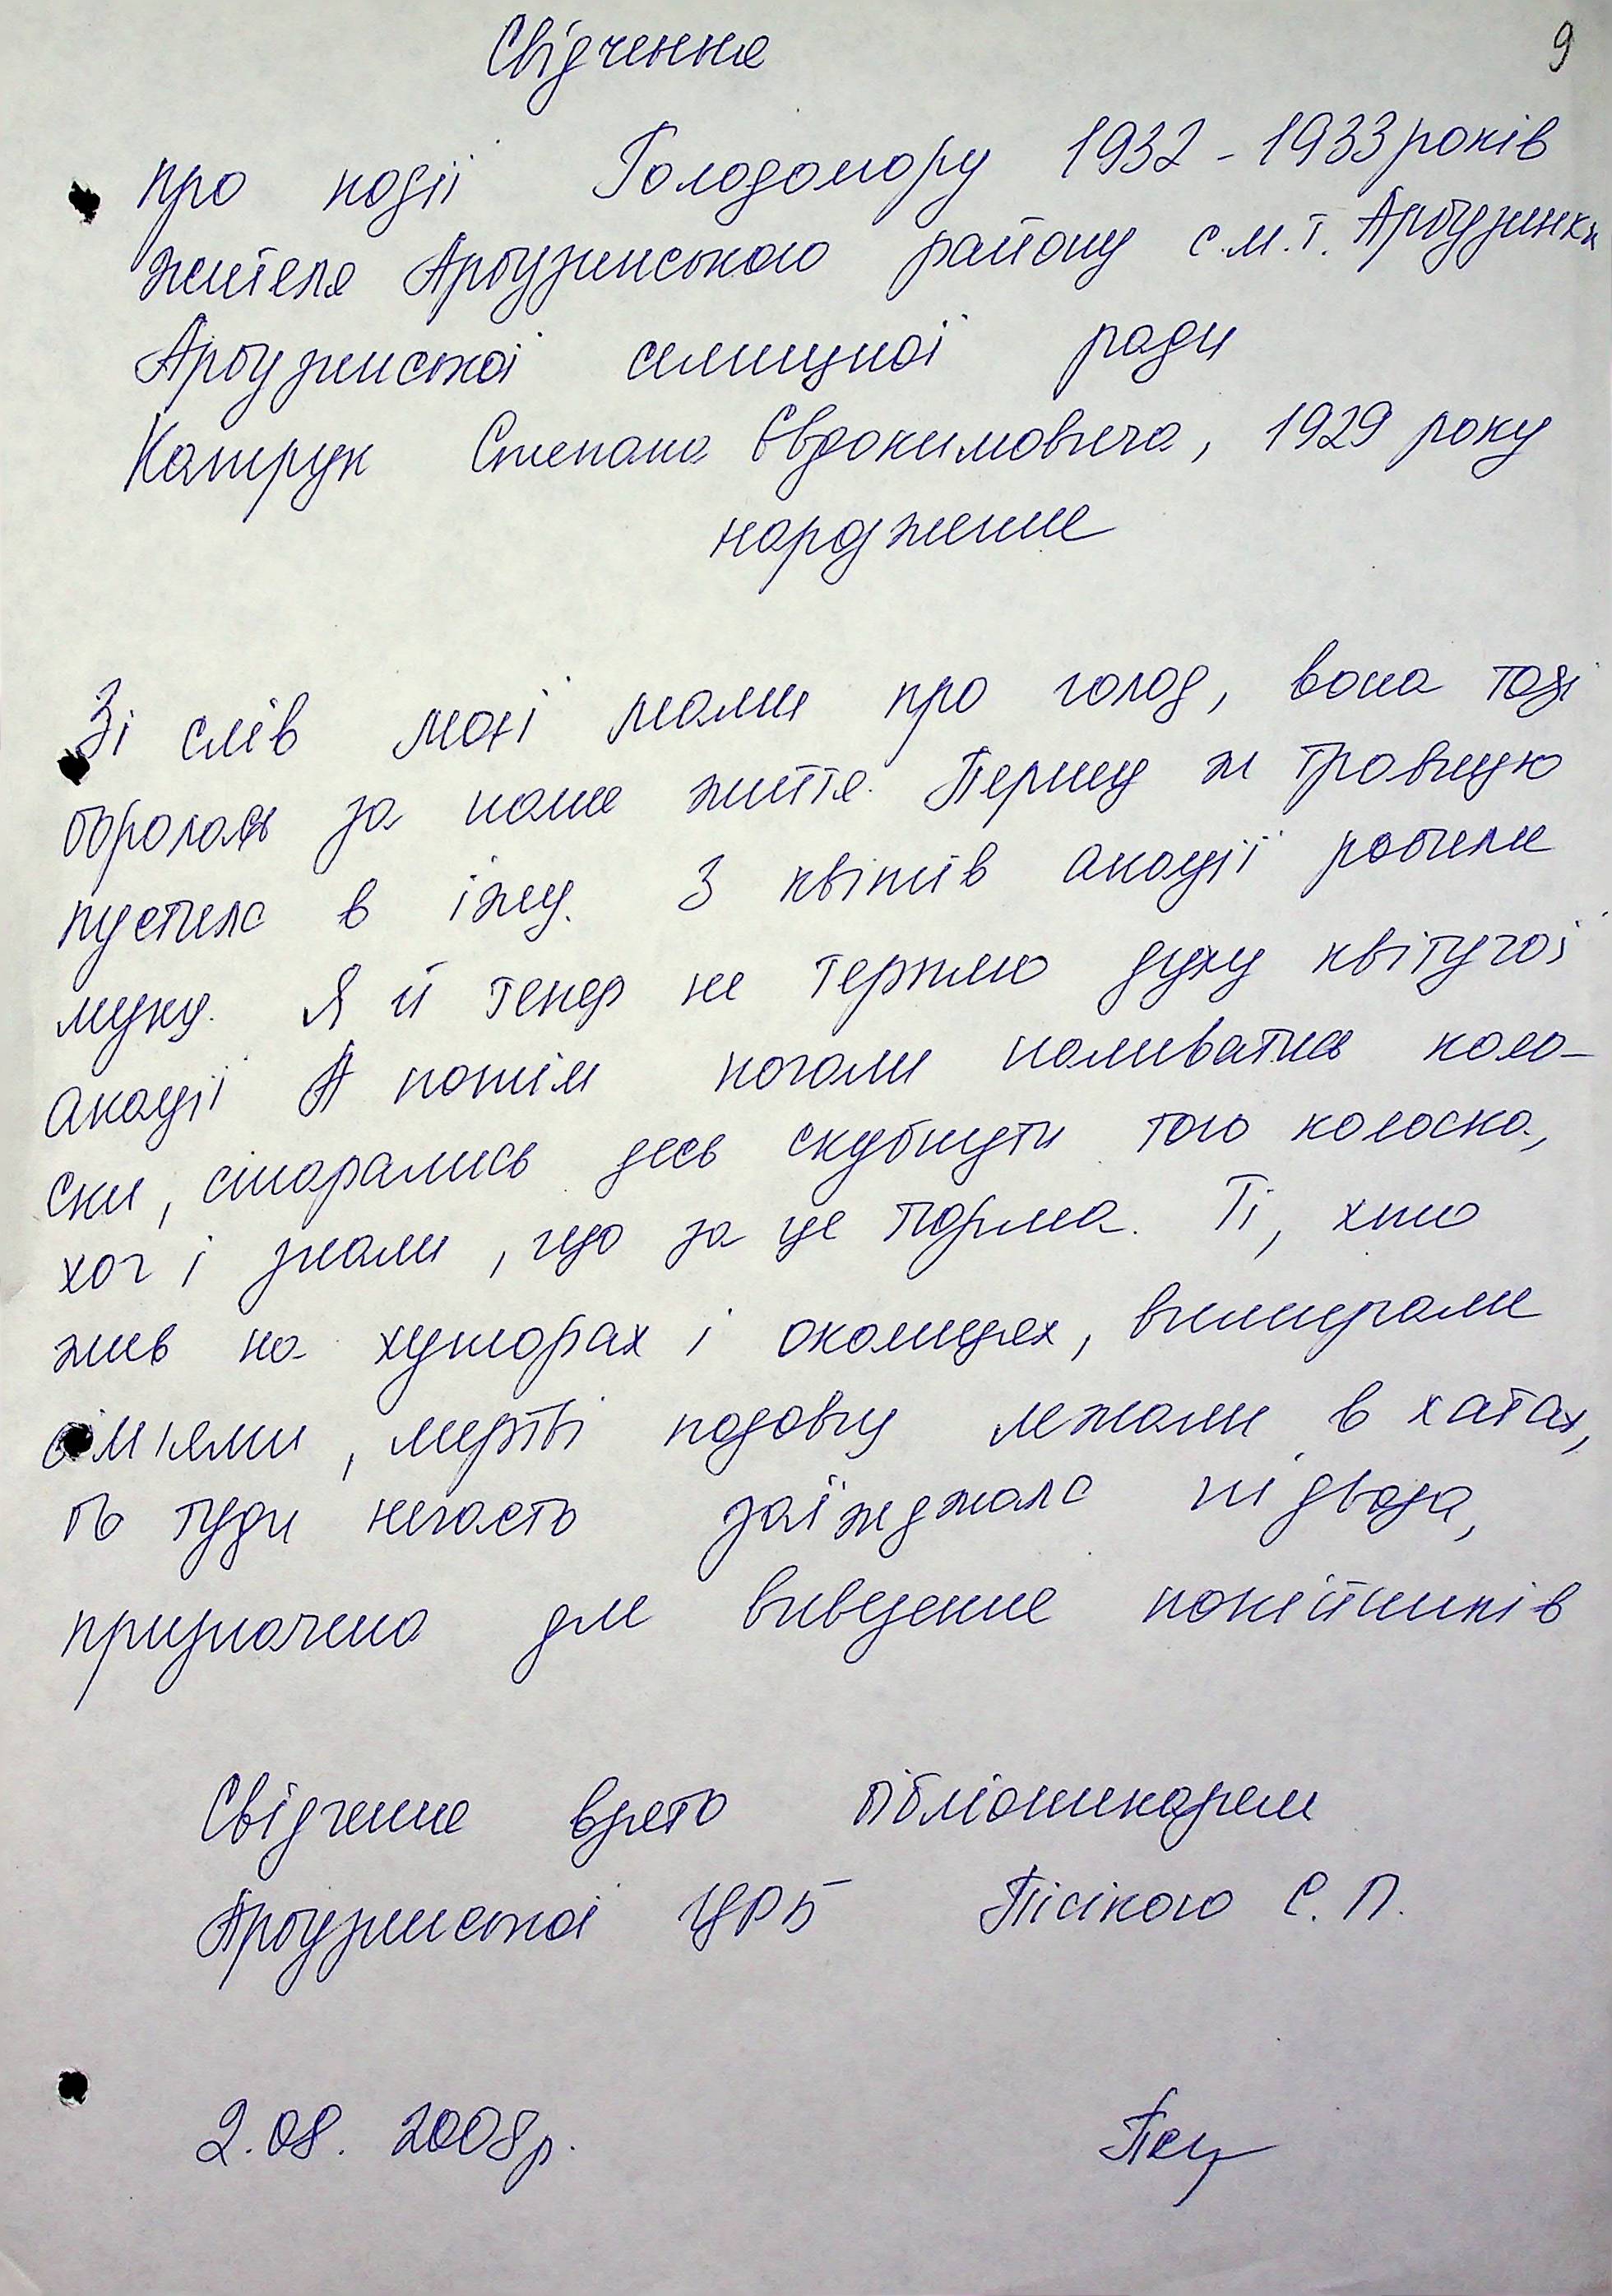 9
Свідчення
про події Голодомору 1932 - 1933 років
жителя Арбузинського району с.м.т. Арбузинка
Арбузинської селищної ради
Катрук Степана Євдокимовича, 1929 року
народження
Зі слів моєї мами про голод, вона тоді
боролась за наше життя. Першу ж травицю
пустила в їжу. З квітів акації робили
муку. Я й тепер не терплю духу квітучої
акації А потім почали наливатись коло-
ски, старались десь скубнути того колоска,
хоч і знали, що за це тюрма. Ті, хто
жив на хуторах і околицях, вимирали
сім'ями, мертві подовгу лежали в хатах,
бо туди нечасто заїжджала підвода,
призначена для вивезення покійників
Свідчення взято бібліотекарем
Арбузинської ЦРБ С. П.
2.08. 2008р.